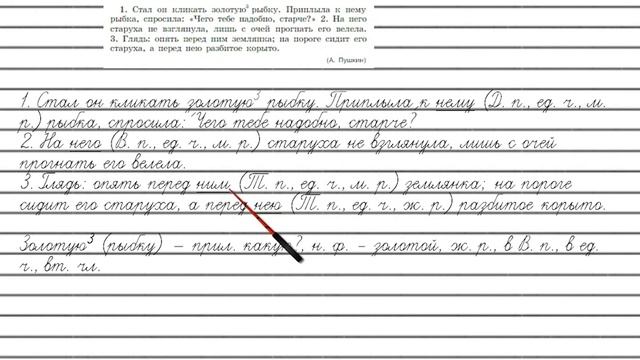 1. Стал он кликать золотую³ рыбку. Приплыла к нему
рыбка, спросила: «Чего тебе надобно, старче?» 2. На него
старуха не взглянула, лишь с очей прогнать его велела.
3. Глядь: опять перед ним землянка; на пороге сидит его
старуха, а перед нею разбитое корыто.
(А. Пушкин)
1. Стал он кликать золотую³ рыбку. Приплыла к нему (Д. п., ед. ч., м.
р.) рыбка, спросила: Чего тебе надобно, старче?
2. На него (В. п., ед. ч., м. р.) старуха не взглянула, лишь с очей
прогнать его велела.
3. Глядь: опять перед ним (Т. п., ед. ч., м. р.) землянка; на пороге
сидит его старуха, а перед нею (Т. п., ед. ч., ж. р.) разбитое корыто.
Золотую³ (рыбку) – прил. какую?, н. ф. – золотой, ж. р., в В. п., в ед.
ч., вт. чл.